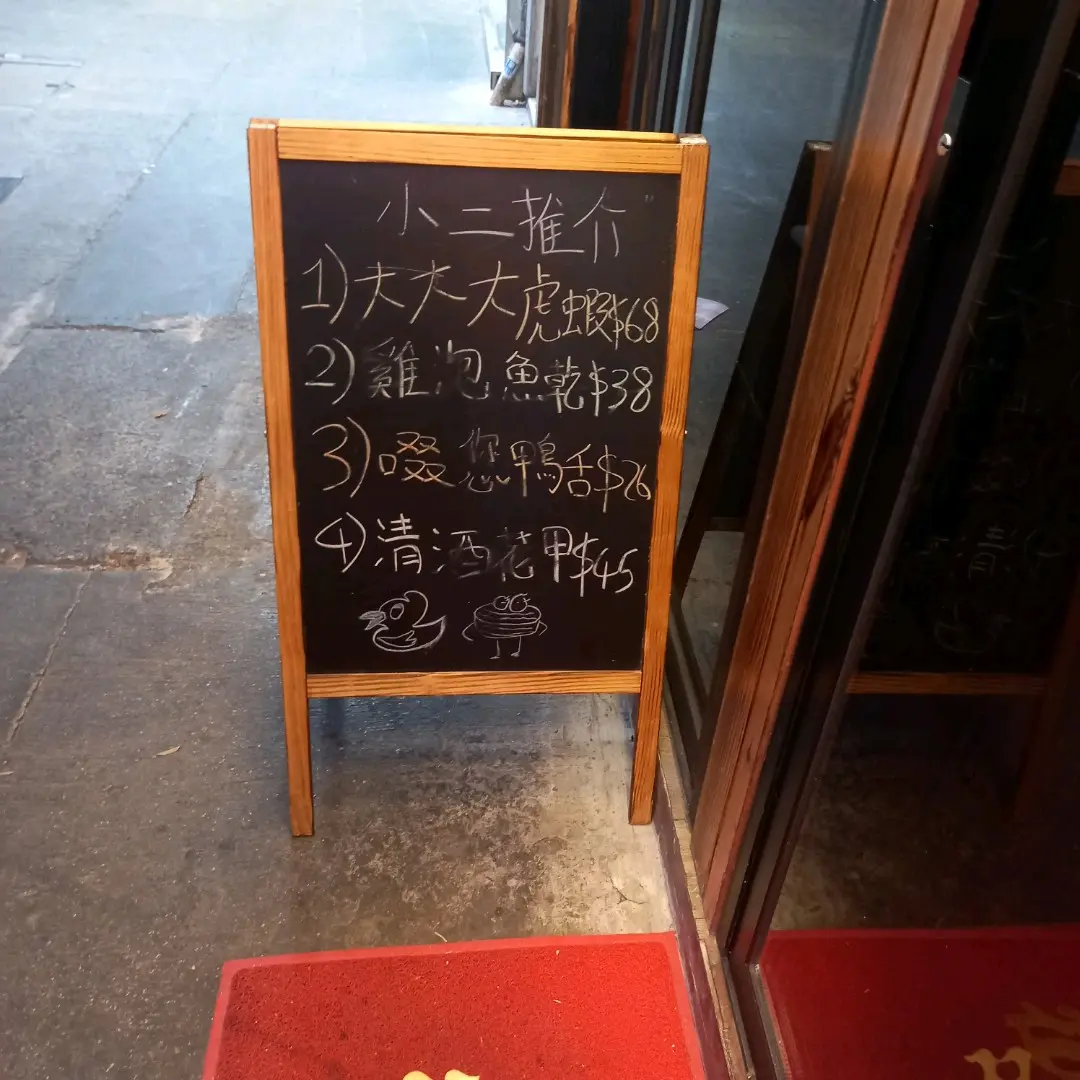 小二推介"
1)大大大虎蝦$68
2)雞泡魚乾$38
3)啜您鴨舌$26
4)清酒花甲$45